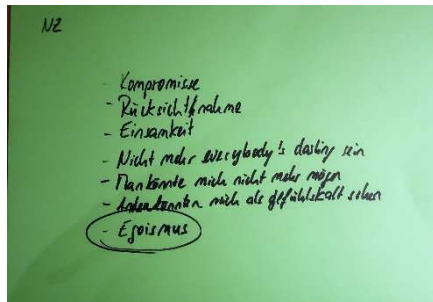 NZ
- Kompromisse
- Rücksichtnahme
- Einsamkeit
- Nicht mehr everybody's darling sein
- Man könnte mich nicht mehr mögen
- könnten mich als gefühlskalt sehen
- Egoismus